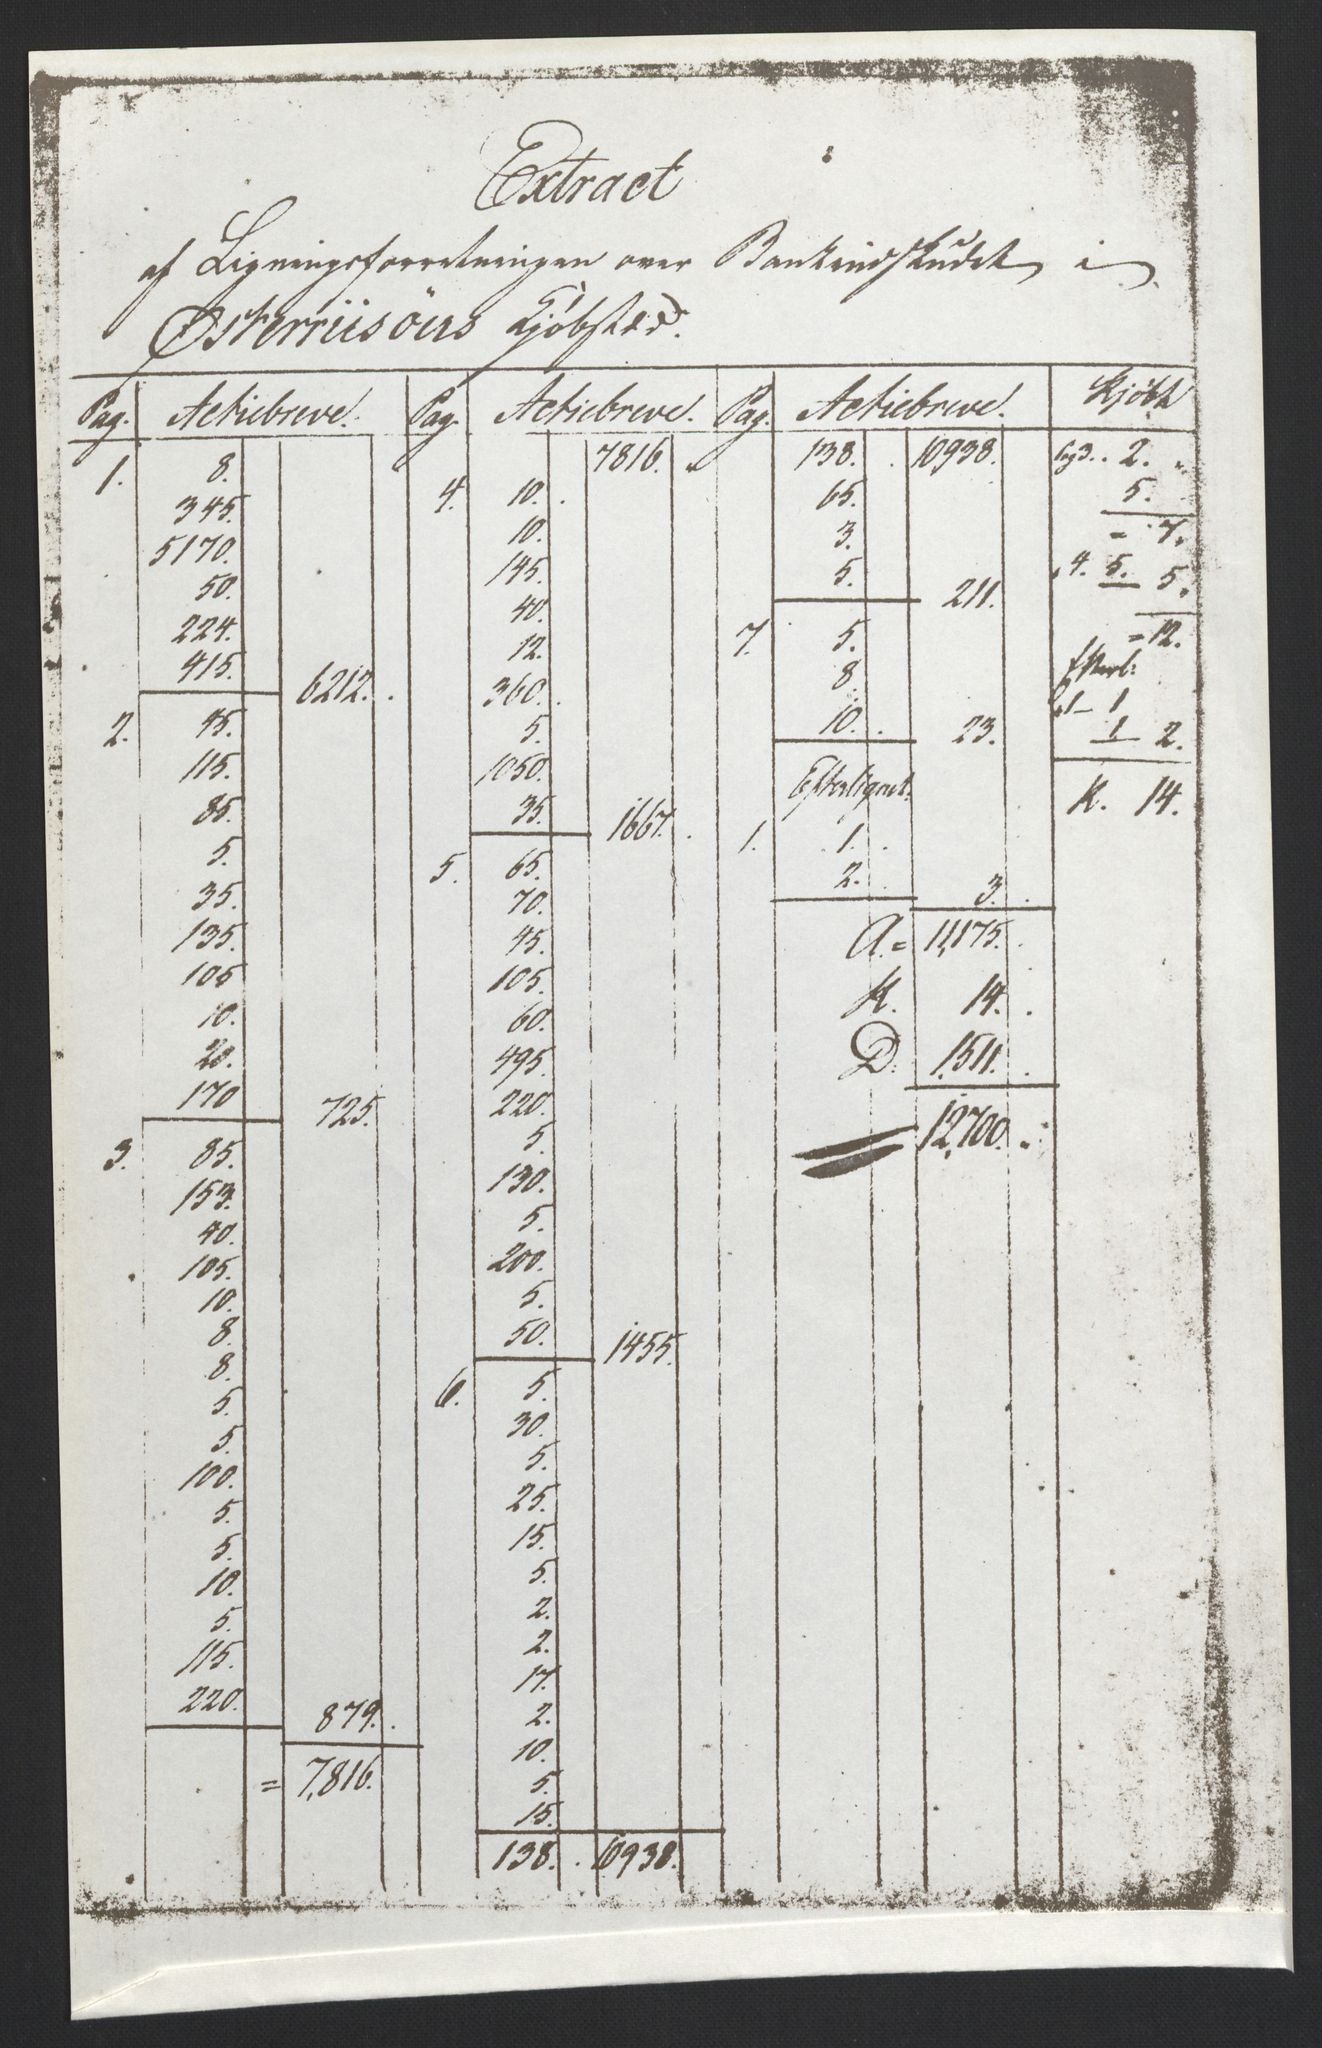 Extract
af Ligningsforretningen over Bankindskudet i
Østerriisöers Kjøbsted.
Pag. Actiebreve. Pag. Actiebreve. Pag. Actiebreve. Kjöbh
1. 8.
345.
5170.
50.
224.
415. 6212.
2. 45.
115.
85.
5.
35.
135.
105
10.
20.
170 725.
3. 85.
153.
40.
105.
10.
8.
8.
5.
5.
100.
5.
5.
10.
5.
115.
220. 879.
= 7,816.
7816.
4. 10.
10.
145.
40.
12.
360.
5.
1050.
35. 1667.
5. 65.
70.
45.
105.
60.
495.
220.
5.
130.
5.
200.
5.
50. 1455.
6. 5.
30.
5.
25.
15.
5.
2.
2.
17.
2.
10.
5.
15.
138. 10938.
138. 10938.
65.
3.
5. 211.
7. 5.
8
10. 23.
Efterlignet.
1. 1.
2. 3.
A. = 11,175.
K. 14.
D. 1511.
12,700.
pag 3. 2.
5.
= 7.
4. 5. 5.
= 12.
Efterl:
p1 - 1
1 2.
K. 14.